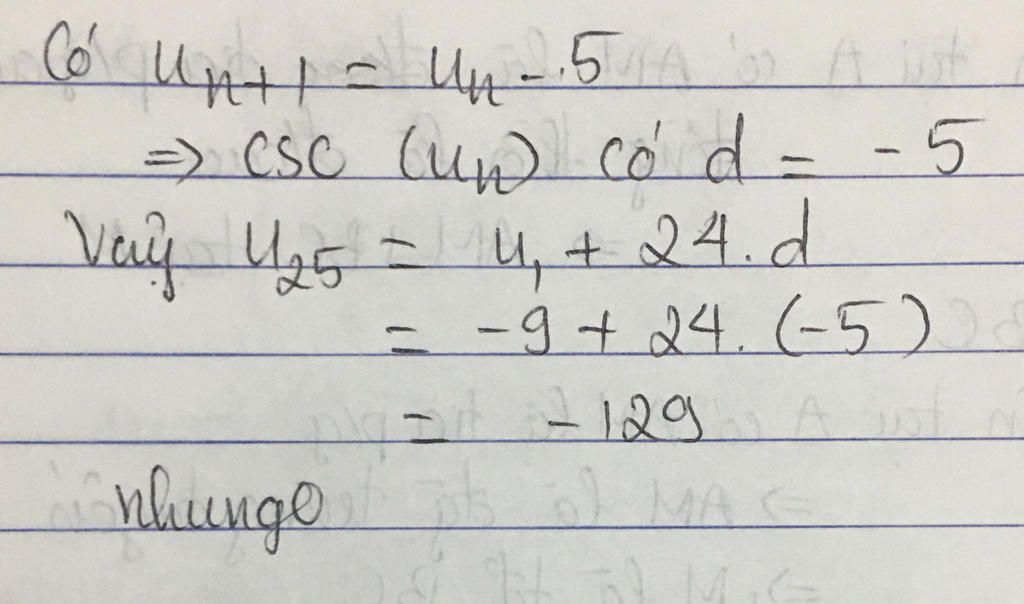 Có uₙ₊₁ = uₙ - 5
=> CSC (uₙ) có d = -5
Vậy u₂₅ = u₁ + 24.d
= -9 + 24.(-5)
= -129
nhungo